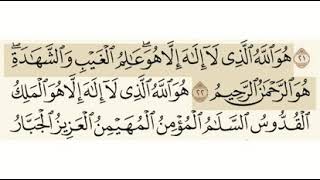 ٢١ هُوَ ٱللَّهُ ٱلَّذِي لَآ إِلَٰهَ إِلَّا هُوَۖ عَٰلِمُ ٱلْغَيْبِ وَٱلشَّهَٰدَةِۖ
هُوَ ٱلرَّحْمَٰنُ ٱلرَّحِيمُ ٢٢ هُوَ ٱللَّهُ ٱلَّذِي لَآ إِلَٰهَ إِلَّا هُوَ ٱلْمَلِكُ
ٱلْقُدُّوسُ ٱلسَّلَٰمُ ٱلْمُؤْمِنُ ٱلْمُهَيْمِنُ ٱلْعَزِيزُ ٱلْجَبَّارُ